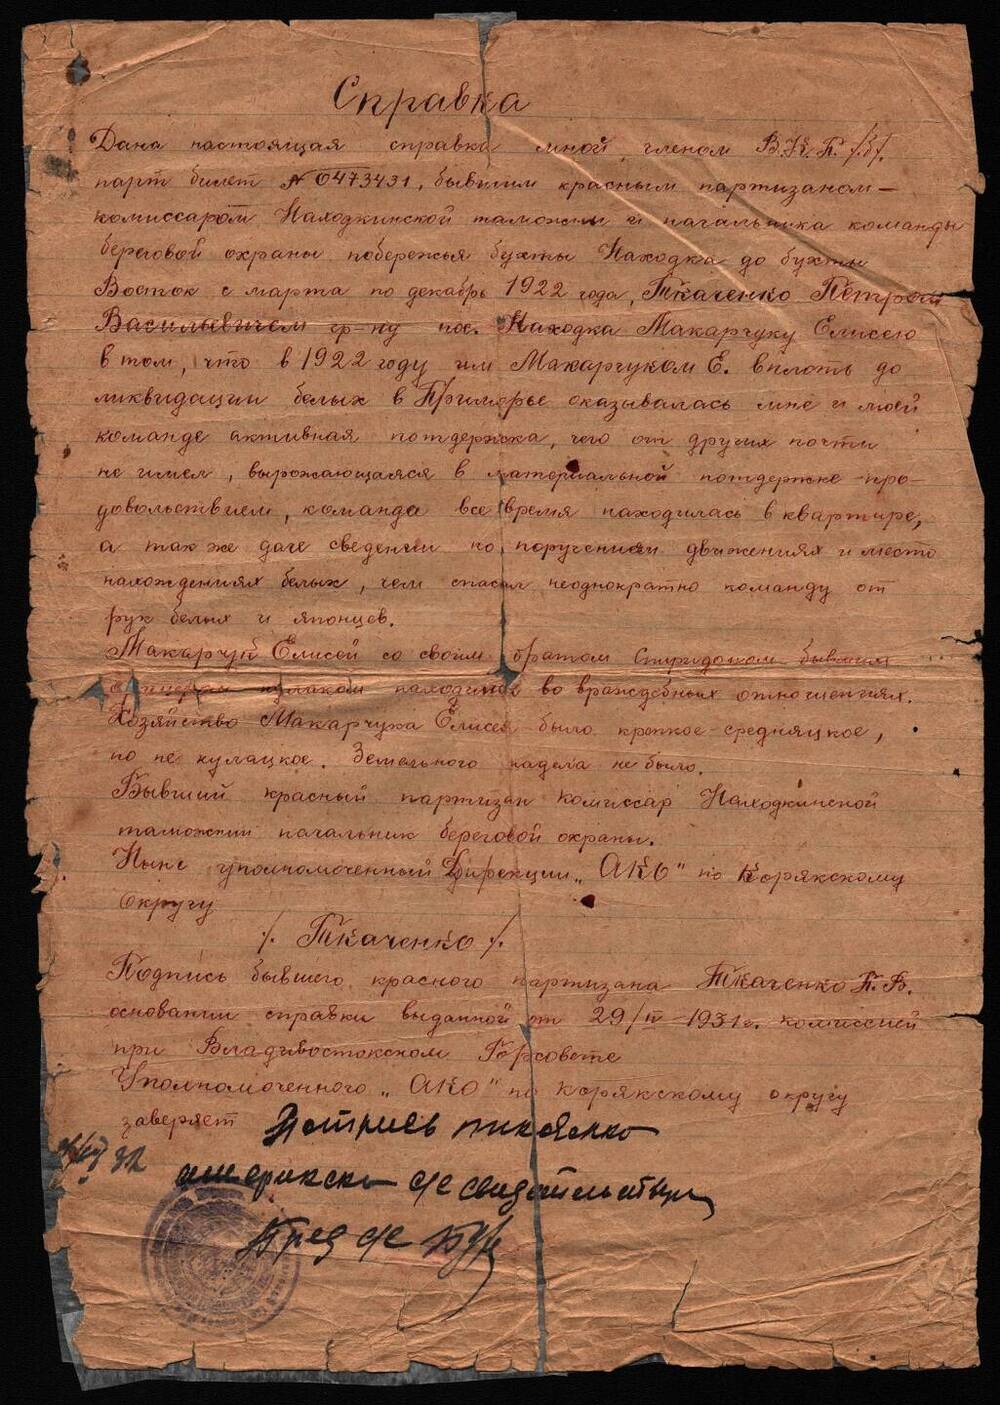 Справка
Дана настоящая справка мной, членом В.К.П. /б/.
парт билет № 0473431, бывшим красным партизаном —
комиссаром Находкинской таможни и начальника команды
береговой охраны побережья бухты Находка до бухты
Восток с марта по декабрь 1922 года, Ткаченко Петром
Васильевичем гр-ну пос. Находка Макарчуку Елисею
в том, что в 1922 году им Макарчуком Е. вплоть до
ликвидации белых в Приморье оказывалась мне и моей
команде активная потдержка, чего от других почти
не имел, вырожающаяся в материальной потдержке про-
довольствием, команда все время находилась в квартире,
а так же даче сведении по поручениям движениях и место
нахождениях белых, чем спасал неоднократно команду от
рук белых и японцев.
Макарчук Елисей со своим братом Спиридоном бывшим
офицером кулаком находился во враждебных отношениях.
Хозяйство Макарчука Елисея было крепкое средняцкое,
но не кулацкое. Земельного надела не было.
Бывший красный партизан комиссар Находкинской
таможни начальник береговой охраны.
Ныне уполномоченный Дирекции „АКО" по Корякскому
округу
/. Ткаченко /.
Подпись бывшего красного партизана Ткаченко П.В.
основании справки выданной от 29/IV 1931г. комиссией
при Владивостокском Горсовете
Уполномоченного „АКО" по Корякскому округу
заверяет
32
Пред